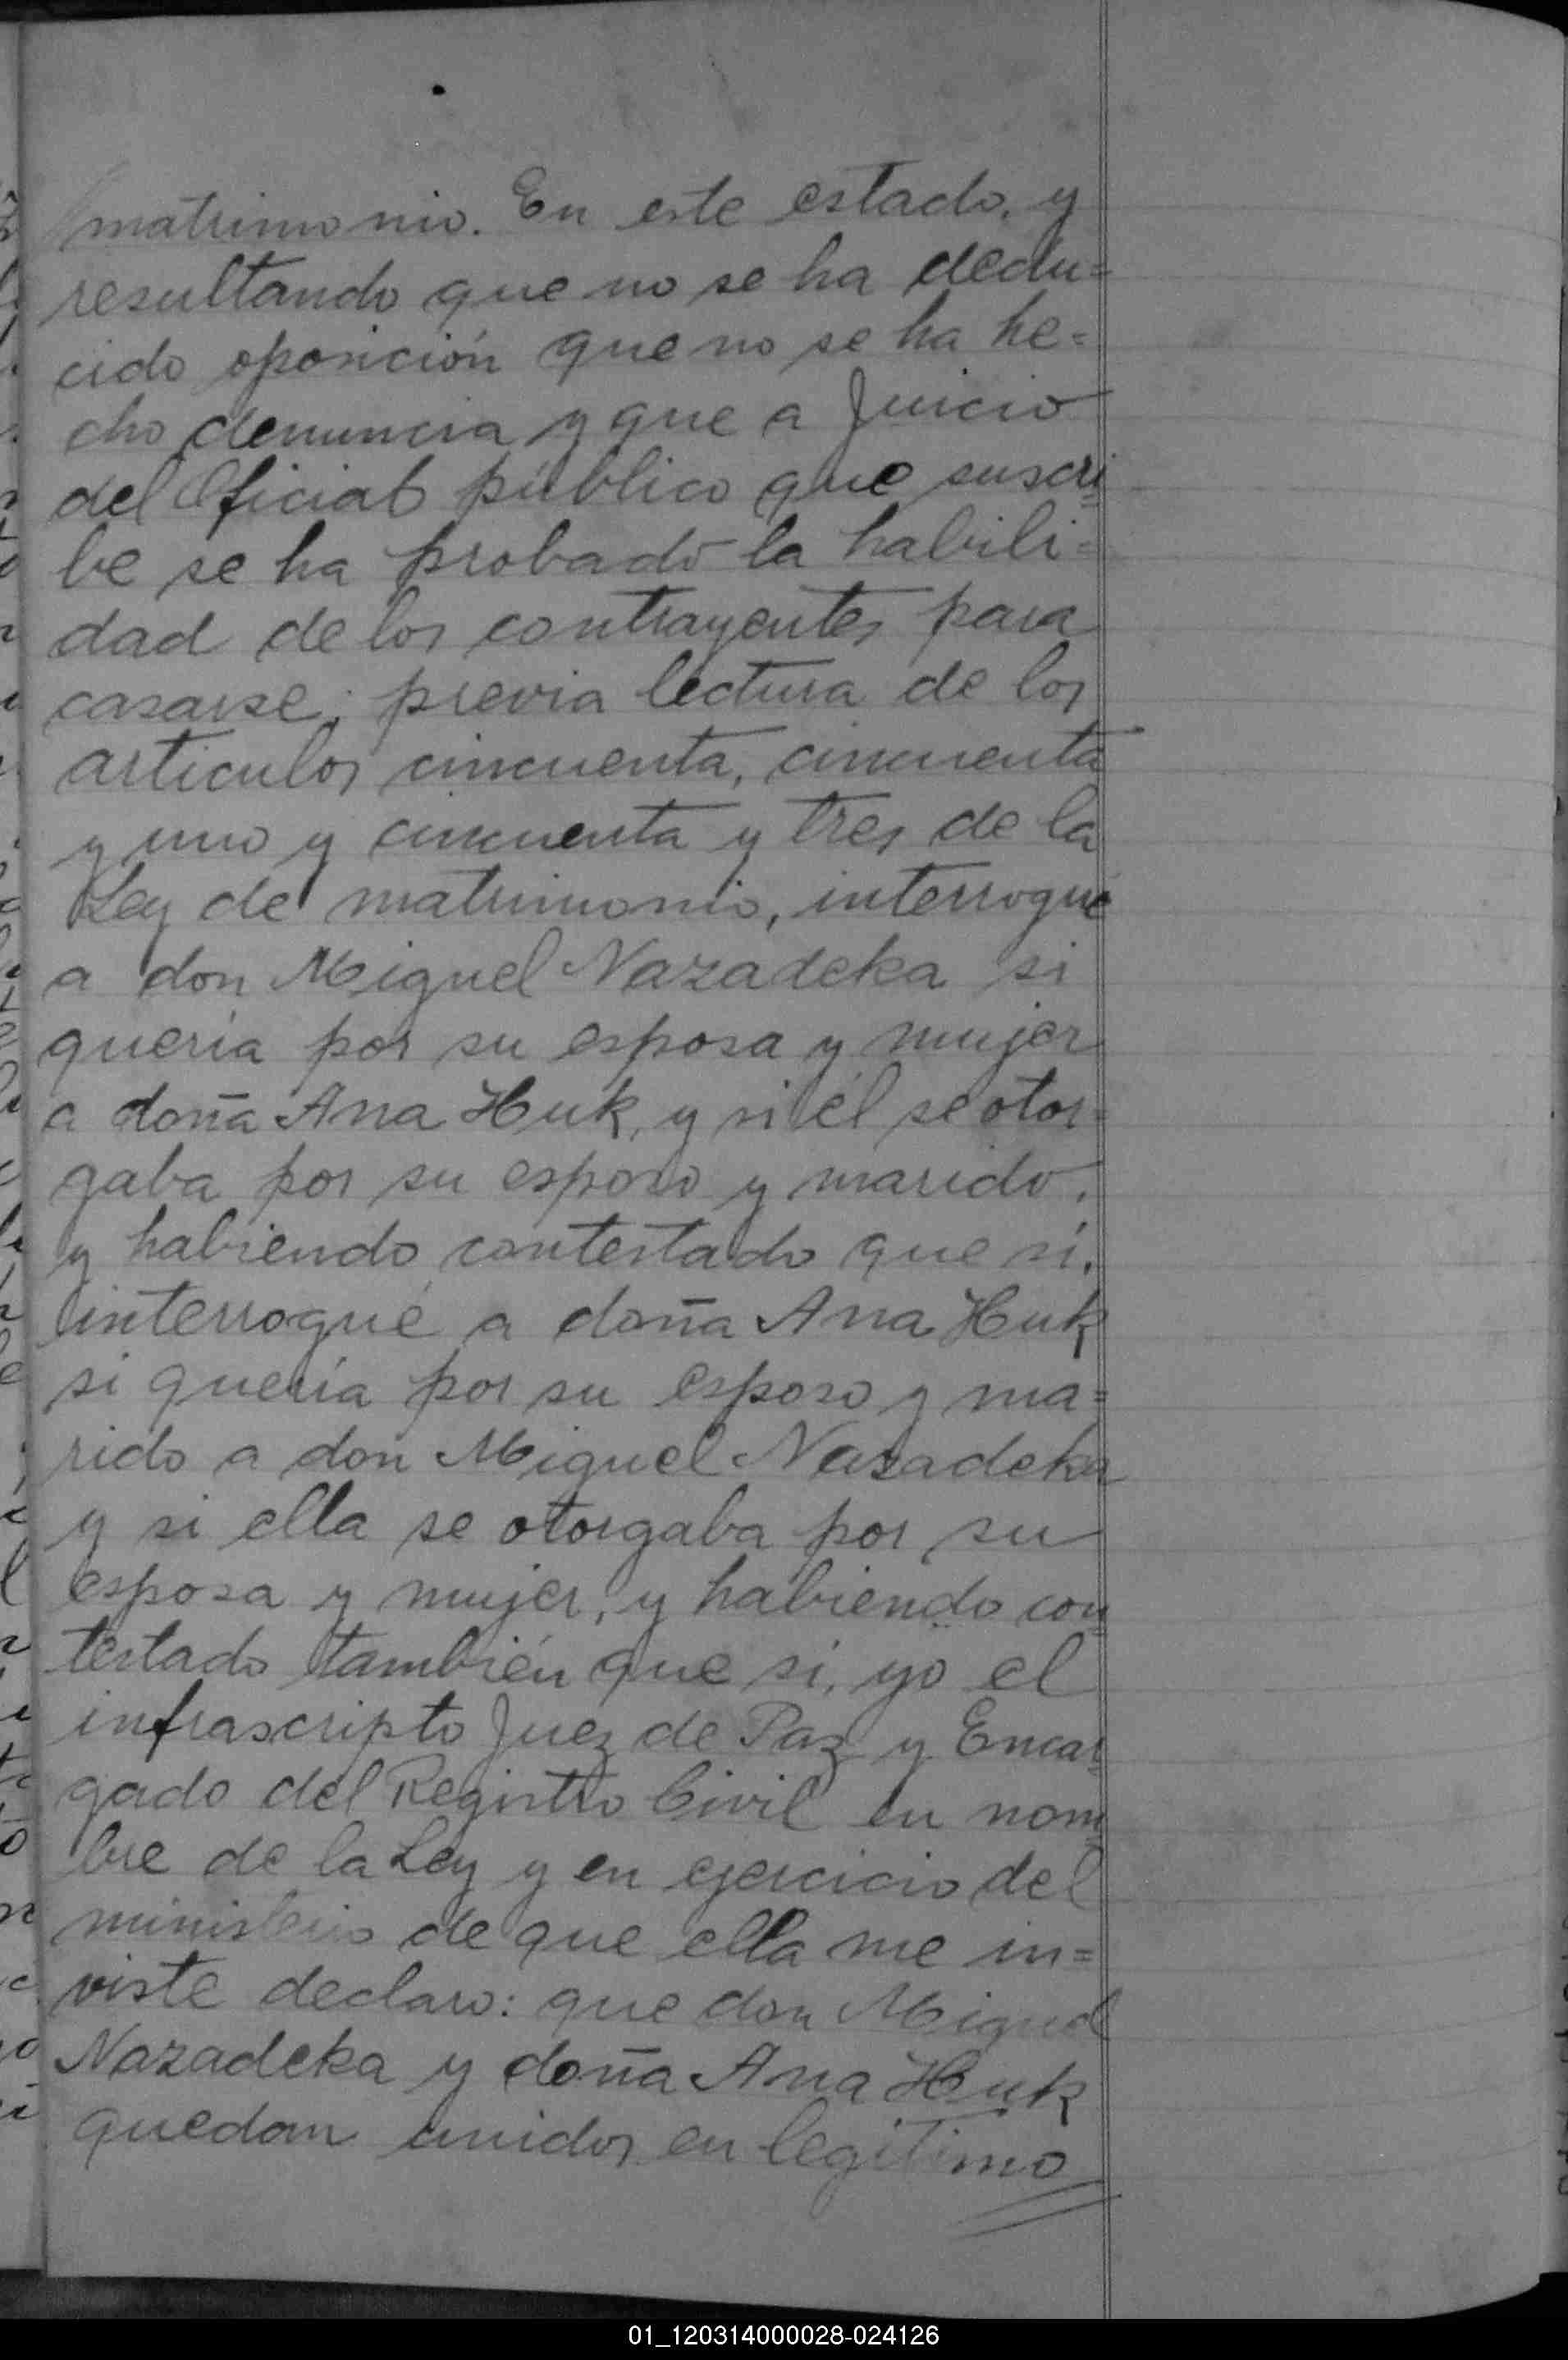 matrimonio. En este estado, y
resultando que no se ha dedu=
cido oposición que no se ha he=
cho denuncia y que a Juicio
del Oficial público que suscri=
be se ha probado la habili=
dad de los contrayentes para
casarse; previa lectura de los
articulos cincuenta, cincuenta
y uno y cincuenta y tres de la
Ley de matrimonio, interrogué
a don Miguel Nazadeka si
quería por su esposa y mujer
a doña Ana Huk, y si él se otor=
gaba por su esposo y marido,
y habiendo contestado que sí,
interrogué a doña Ana Huk
si quería por su esposo y ma=
rido a don Miguel Nazadeka
y si ella se otorgaba por su
esposa y mujer, y habiendo con=
testado también que sí, yo el
infrascripto Juez de Paz y Encar=
gado del Registro Civil en nom=
bre de la Ley y en ejercicio del
ministerio de que ella me in=
viste declaro: que don Miguel
Nazadeka y doña Ana Huk
quedan unidos en legítimo
01_120314000028-024126